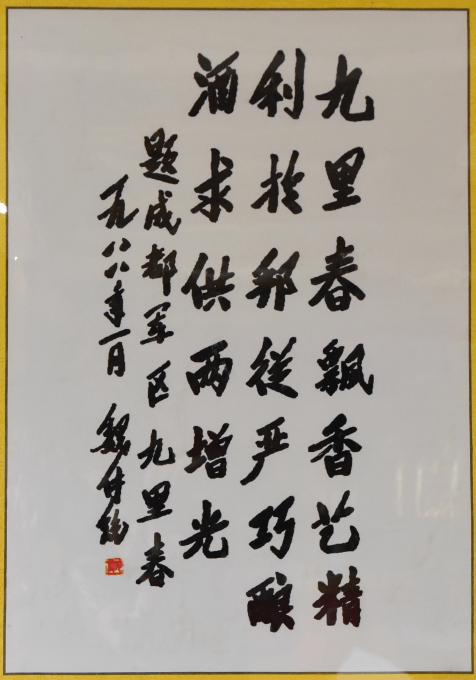 九里春飘香艺精
利於邦从严巧酿
酒求供两增光
题成都军区九里春
一九八八年一月 魏传统